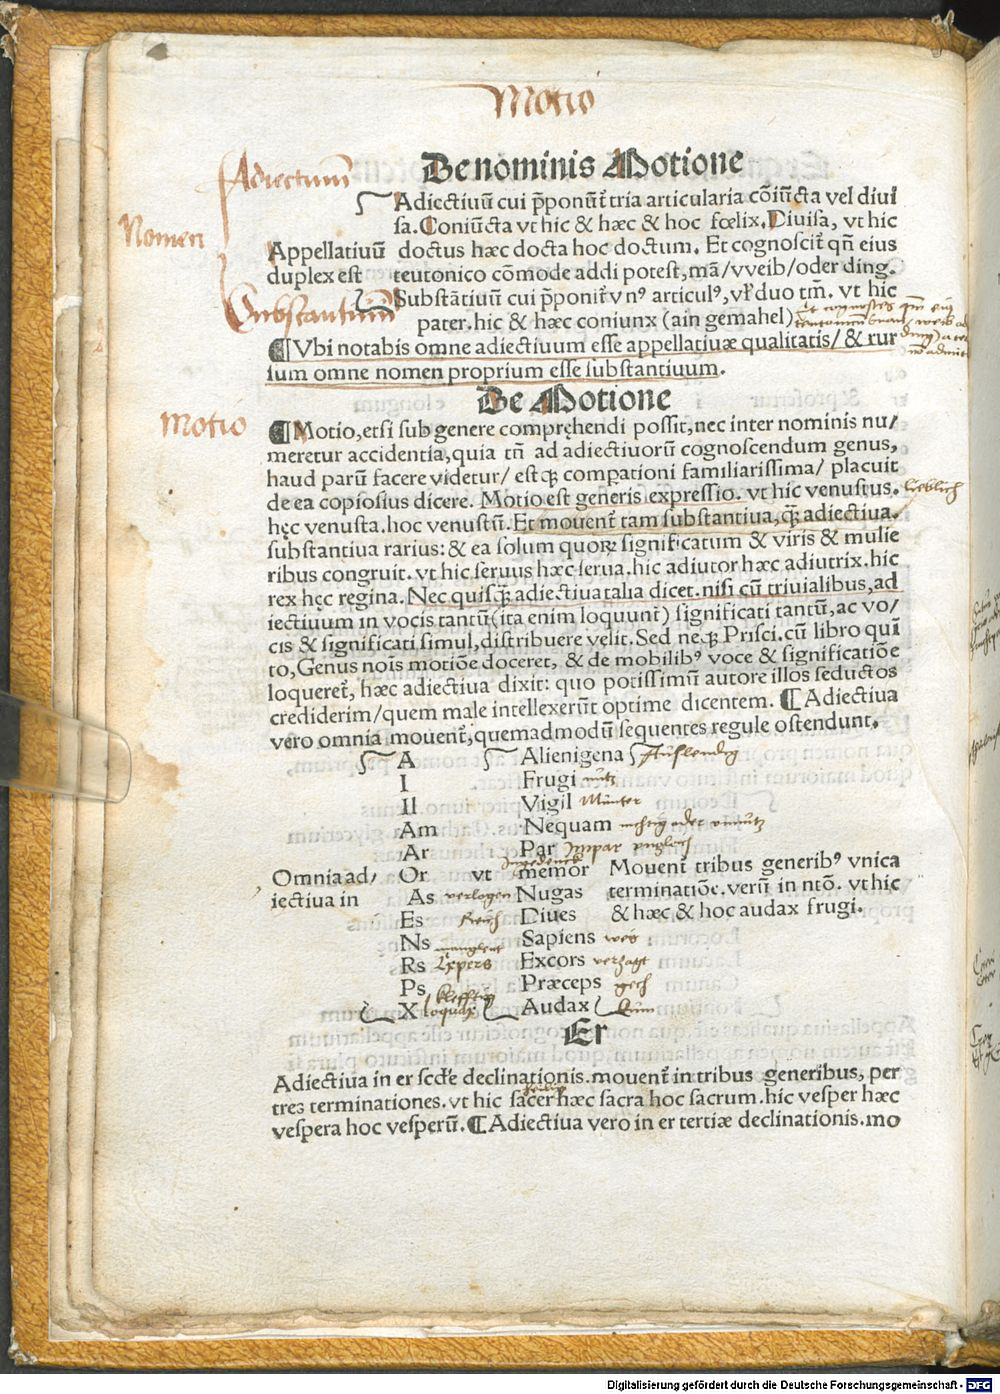 Motio
De nominis Motione
Adiectiuum
Adiectiuū cui p̄ponūt᷑ tria articularia cōiūcta vel diui
sa. Coniūcta vt hic & hæc & hoc fœlix. Diuisa, vt hic
Nomen
Appellatiuū doctus hæc docta hoc doctum. Et cognoscit᷑ qn̄ eius
duplex est teutonico cōmode addi potest, mā/vveib/oder ding.
Substantiuum
Substātiuū cui p̄ponit᷑ vnꝰ articulꝰ, vl̓ duo tm̄. vt hic
pater. hic & hæc coniunx (ain gemahel)
¶ Vbi notabis omne adiectiuum esse appellatiuæ qualitatis/ & rur
sum omne nomen proprium esse substantiuum.
De Motione
Motio
¶ Motio, etsi sub genere compręhendi possit, nec inter nominis nu/
meretur accidentia, quia tn̄ ad adiectiuorū cognoscendum genus,
haud parū facere videtur/ estꝙ compationi familiarissima/ placuit
de ea copiosius dicere. Motio est generis expressio. vt hic venustus. lieblich
hęc venusta. hoc venustū. Et mouent᷑ tam substantiua, q̄ꝫ adiectiua.
substantiua rarius: & ea solum quoꝝ significatum & viris & mulie
ribus congruit. vt hic seruus hæc serua. hic adiutor hæc adiutrix. hic
rex hęc regina. Nec quisq̄ꝫ adiectiua talia dicet. nisi cū triuialibus, ad
iectiuum in vocis tantū (ita enim loquunt᷑) significati tantū, ac vo/
cis & significati simul, distribuere velit. Sed neꝙ Prisci. cū libro quī
to, Genus nois motiōe doceret, & de mobilibꝰ voce & significatiōe
loqueret᷑, hæc adiectiua dixit: quo potissimū autore illos seductos
crediderim/ quem male intellexerūt optime dicentem. ¶ Adiectiua
vero omnia mouent᷑, quemadmodū sequentes regule ostendunt.
A Alienigena Auslendig
I Frugi nütz
Il Vigil Munter
Am Nequam nichtig oder vnnutz
Ar Par Impar vngleich
Omnia ad/ Or vt memor ingedenck Mouent᷑ tribus generibꝰ vnica
iectiua in As verlogen Nugas terminatiōe. verū in ntō. vt hic
Es Reich Diues & hæc & hoc audax frugi.
Ns Sapiens weis
Rs Expers Excors verzagt
Ps Præceps gech
X loquax Audax Kun
Er
Adiectiua in er scd̓e declinationis. mouent᷑ in tribus generibus, per
heilig
tres terminationes. vt hic sacer hæc sacra hoc sacrum. hic vesper hæc
vespera hoc vesperū. ¶ Adiectiua vero in er tertiæ declinationis. mo
Digitalisierung gefördert durch die Deutsche Forschungsgemeinschaft - DFG